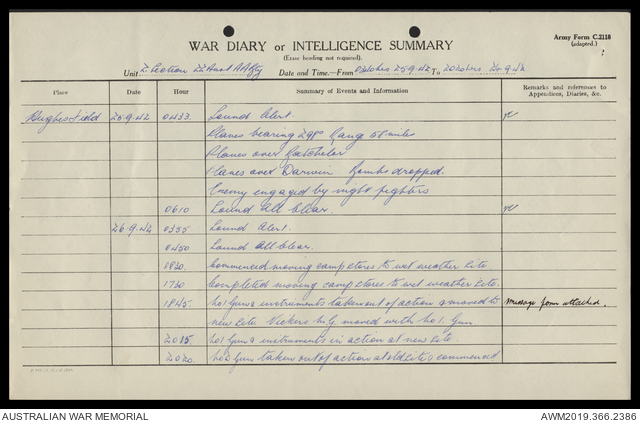 Army Form C.2118
(adapted.)
WAR DIARY or INTELLIGENCE SUMMARY
(Erase heading not required).
Unit Z Section 22 Aust A A Bty Date and Time.—From 25.9.42 To 2024hrs 26.9.42
Place Date Hour Summary of Events and Information Remarks and references to Appendices, Diaries, &c.
Hughes Field 25.9.42 0433 Sound Alert.
Planes bearing 298° Rang 58 miles
Planes over Batchelor
Planes over Darwin Bombs dropped.
Enemy engaged by night fighters
0610 Sound All Clear.
26.9.42 0355 Sound Alert.
0450 Sound All Clear.
0930 Commenced moving camp stores to wet weather Site.
1730 Completed moving camp stores to wet weather Site.
1845 No1 Gun & instruments taken out of action & moved to Message form attached.
new Site Vickers M.G moved with No 1. Gun
2015 No1 Gun & instruments in action at new Site.
2020 No2 Gun taken out of action at old Site & commenced
AUSTRALIAN WAR MEMORIAL AWM2019.366.2386